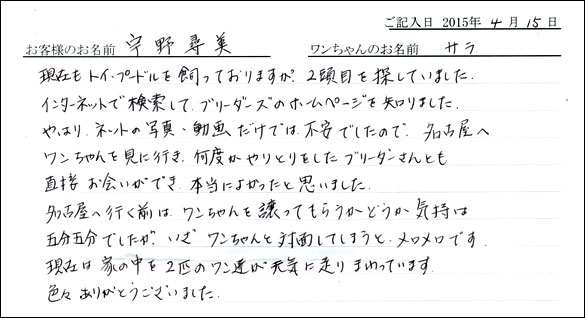 ご記入日 2015年 4月 15日
お客様のお名前 宇野尋美 ワンちゃんのお名前 サラ
現在もトイ・プードルを飼っておりますが、2頭目を探していました。
インターネットで検索して、ブリーダーズのホームページを知りました。
やはり、ネットの写真・動画だけでは不安でしたので、名古屋へ
ワンちゃんを見に行き、何度かやりとりをしたブリーダーさんとも
直接お会いができ、本当によかったと思いました。
名古屋へ行く前は、ワンちゃんを譲ってもらうかどうか気持は
五分五分でしたが、いざワンちゃんと対面してしまうと、メロメロです。
現在は家の中を2匹のワン達が元気に走りまわっています。
色々ありがとうございました。